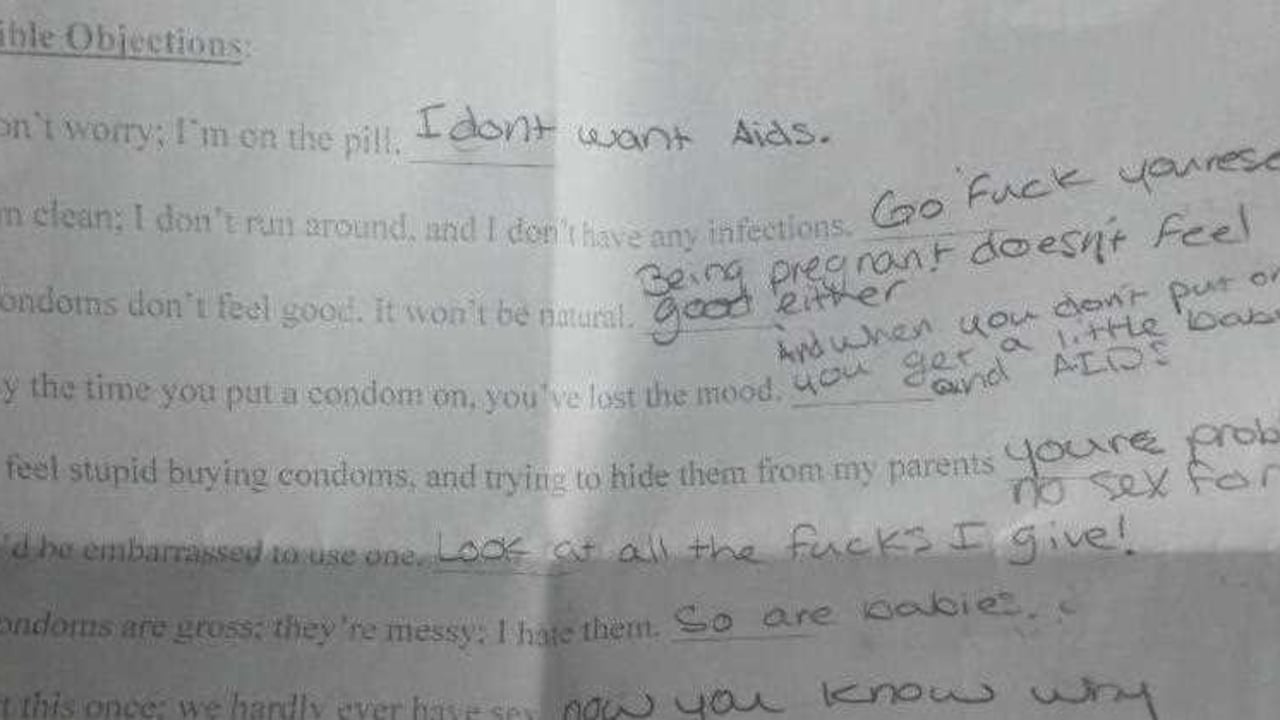 ible Objections:
on't worry; I'm on the pill. I dont want Aids.
m clean; I don't run around, and I don't have any infections. Go Fuck youres
ondoms don't feel good. It won't be natural. Being pregnant doesn't feel
good either
y the time you put a condom on, you've lost the mood. And when you don't put on
you get a little bab
and AIDS
feel stupid buying condoms, and trying to hide them from my parents youre prob
no sex for
'd be embarrassed to use one. Look at all the fucks I give!
ondoms are gross; they're messy; I hate them. So are babies.
t this once; we hardly ever have sex now you know why